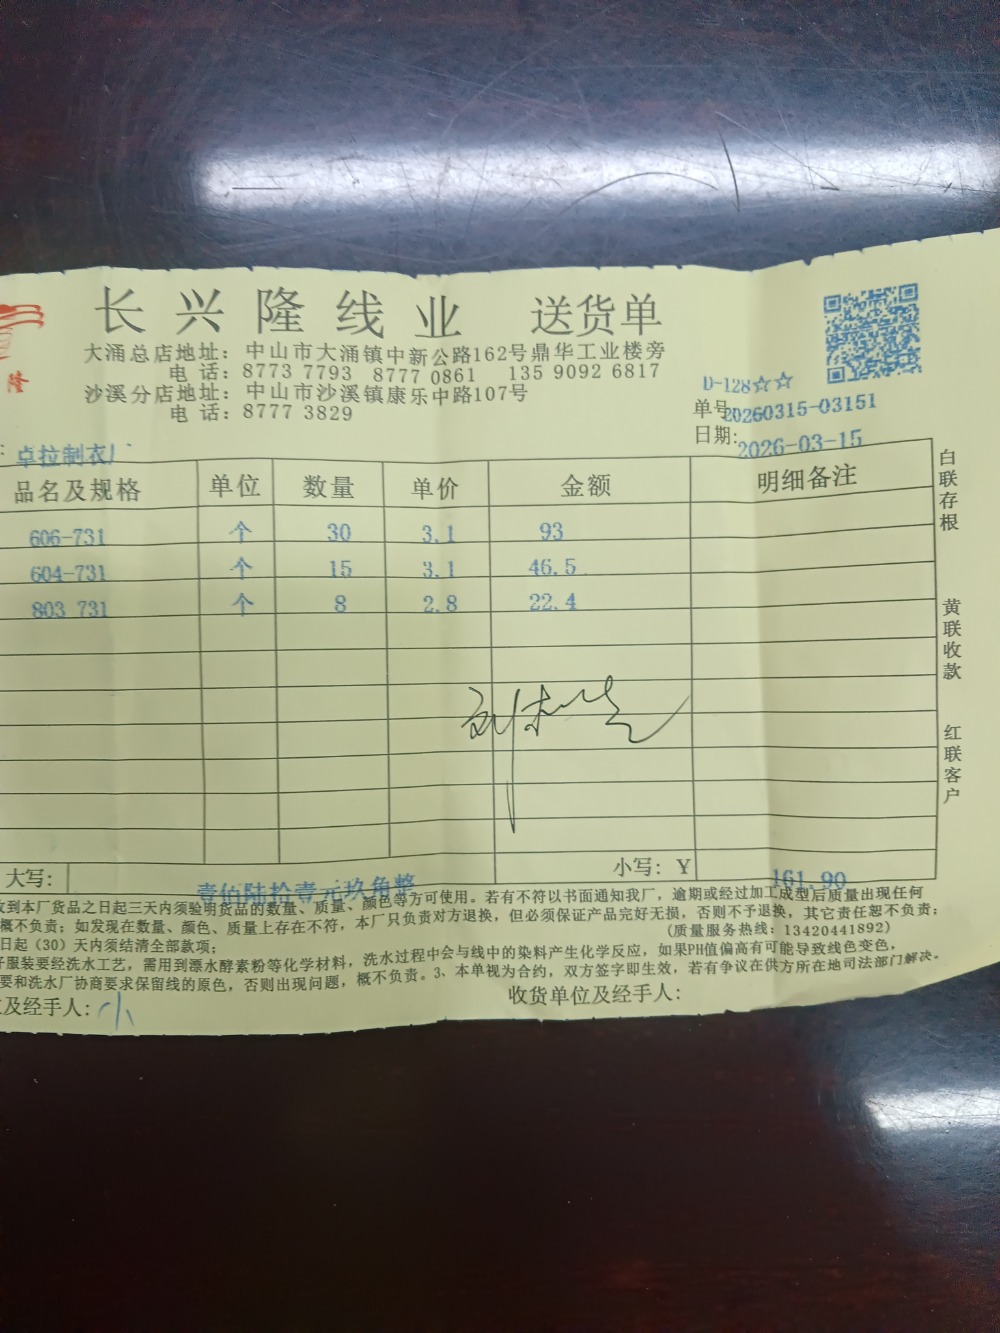 隆
长兴隆线业 送货单
大涌总店地址：中山市大涌镇中新公路162号鼎华工业楼旁
电 话：8773 7793 8777 0861 135 9092 6817
沙溪分店地址：中山市沙溪镇康乐中路107号
电 话：8777 3829
D-128☆☆
单号 20260315-03151
日期: 2026-03-15
: 卓拉制衣厂
品名及规格 单位 数量 单价 金额 明细备注
606-731 个 30 3.1 93
604-731 个 15 3.1 46.5
803 731 个 8 2.8 22.4
白联存根
黄联收款
红联客户
大写: 壹佰陆拾壹元玖角整 小写: ¥ 161.90
收到本厂货品之日起三天内须验明货品的数量、质量、颜色等方可使用。若有不符以书面通知我厂，逾期或经过加工成型后质量出现任何
概不负责；如发现在数量、颜色、质量上存在不符，本厂只负责对方退换，但必须保证产品完好无损，否则不予退换，其它责任恕不负责；
日起（30）天内须结清全部款项； (质量服务热线: 13420441892)
服装要经洗水工艺，需用到漂水酵素粉等化学材料，洗水过程中会与线中的染料产生化学反应，如果PH值偏高有可能导致线色变色，
要和洗水厂协商要求保留线的原色，否则出现问题，概不负责。3、本单视为合约，双方签字即生效，若有争议在供方所在地司法部门解决。
及经手人: 小 收货单位及经手人: